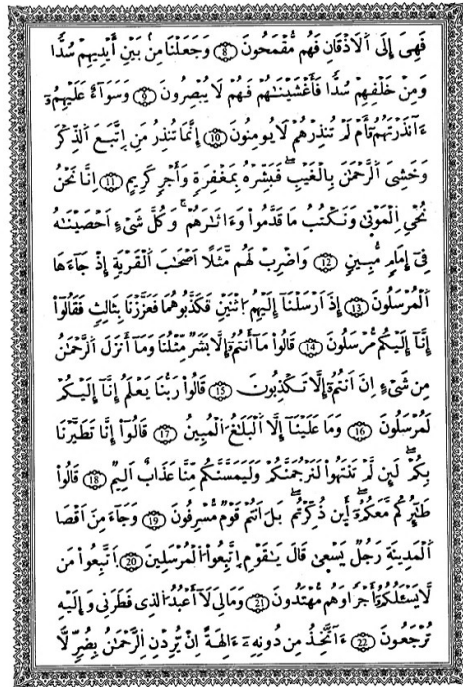 فَهِىَ إِلَى اَ۬لَاذْقَانِ فَهُم مُّقْمَحُونَ ۝8 وَجَعَلْنَا مِنۢ بَيْنِ أَيْدِيهِمْ سُدّاٗ
وَمِنْ خَلْفِهِمْ سُدّاٗ فَأَغْشَيْنَٰهُمْ فَهُمْ لَا يُبْصِرُونَ ۝9 وَسَوَآءٌ عَلَيْهِمُۥٓ
ءَآنذَرْتَهُمُۥٓ أَمْ لَمْ تُنذِرْهُمْ لَا يُومِنُونَ ۝10 إِنَّمَا تُنذِرُ مَنِ اِ۪تَّبَعَ اَ۬لذِّكْرَ
وَخَشِىَ اَ۬لرَّحْمَٰنَ بِالْغَيْبِ فَبَشِّرْهُ بِمَغْفِرَةٖ وَأَجْرٖ كَرِيمٍ ۝11 اِنَّا نَحْنُ
نُحْىِ اِ۬لْمَوْتَىٰ وَنَكْتُبُ مَا قَدَّمُواْ وَءَاثَٰرَهُمْ وَكُلَّ شَىْءٍ اَحْصَيْنَٰهُ
فِىٓ إِمَامٖ مُّبِينٖ ۝12 وَاضْرِبْ لَهُم مَّثَلاً اَصْحَٰبَ اَ۬لْقَرْيَةِ إِذْ جَآءَهَا
اَ۬لْمُرْسَلُونَ ۝13 إِذَ اَرْسَلْنَآ إِلَيْهِمُ اُ۪ثْنَيْنِ فَكَذَّبُوهُمَا فَعَزَّزْنَا بِثَالِثٖ فَقَالُوٓاْ
إِنَّآ إِلَيْكُم مُّرْسَلُونَ ۝14 قَالُواْ مَآ أَنتُمُۥٓ إِلَّا بَشَرٞ مِّثْلُنَا وَمَآ أَنزَلَ اَ۬لرَّحْمَٰنُ
مِن شَىْءٍ اِنَ اَنتُمُۥٓ إِلَّا تَكْذِبُونَ ۝15 قَالُواْ رَبُّنَا يَعْلَمُ إِنَّآ إِلَيْكُمْ
لَمُرْسَلُونَ ۝16 وَمَا عَلَيْنَآ إِلَّا اَ۬لْبَلَٰغُ اُ۬لْمُبِينُ ۝17 قَالُوٓاْ إِنَّا تَطَيَّرْنَا
بِكُمْ لَئِن لَّمْ تَنتَهُواْ لَنَرْجُمَنَّكُمْ وَلَيَمَسَّنَّكُم مِّنَّا عَذَابٌ اَلِيمٞ ۝18 قَالُواْ
طَٰٓئِرُكُم مَّعَكُمُۥٓ أَئِن ذُكِّرْتُم بَلَ اَنتُمْ قَوْمٞ مُّسْرِفُونَ ۝19 وَجَآءَ مِنَ اَقْصَا
اَ۬لْمَدِينَةِ رَجُلٞ يَسْعَىٰ قَالَ يَٰقَوْمِ اِ۪تَّبِعُواْ اُ۬لْمُرْسَلِينَ ۝20 اَ۪تَّبِعُواْ مَن
لَّا يَسْـَٔلُكُمُۥٓ أَجْراٗ وَهُم مُّهْتَدُونَ ۝21 وَمَالِىَ لَآ أَعْبُدُ اُ۬لذِى فَطَرَنِى وَإِلَيْهِ
تُرْجَعُونَ ۝22 ءَآتَّخِذُ مِن دُونِهِۦٓ ءَالِهَةً اِنْ يُّرِدْنِ اِ۬لرَّحْمَٰنُ بِضُرّٖ لَّا